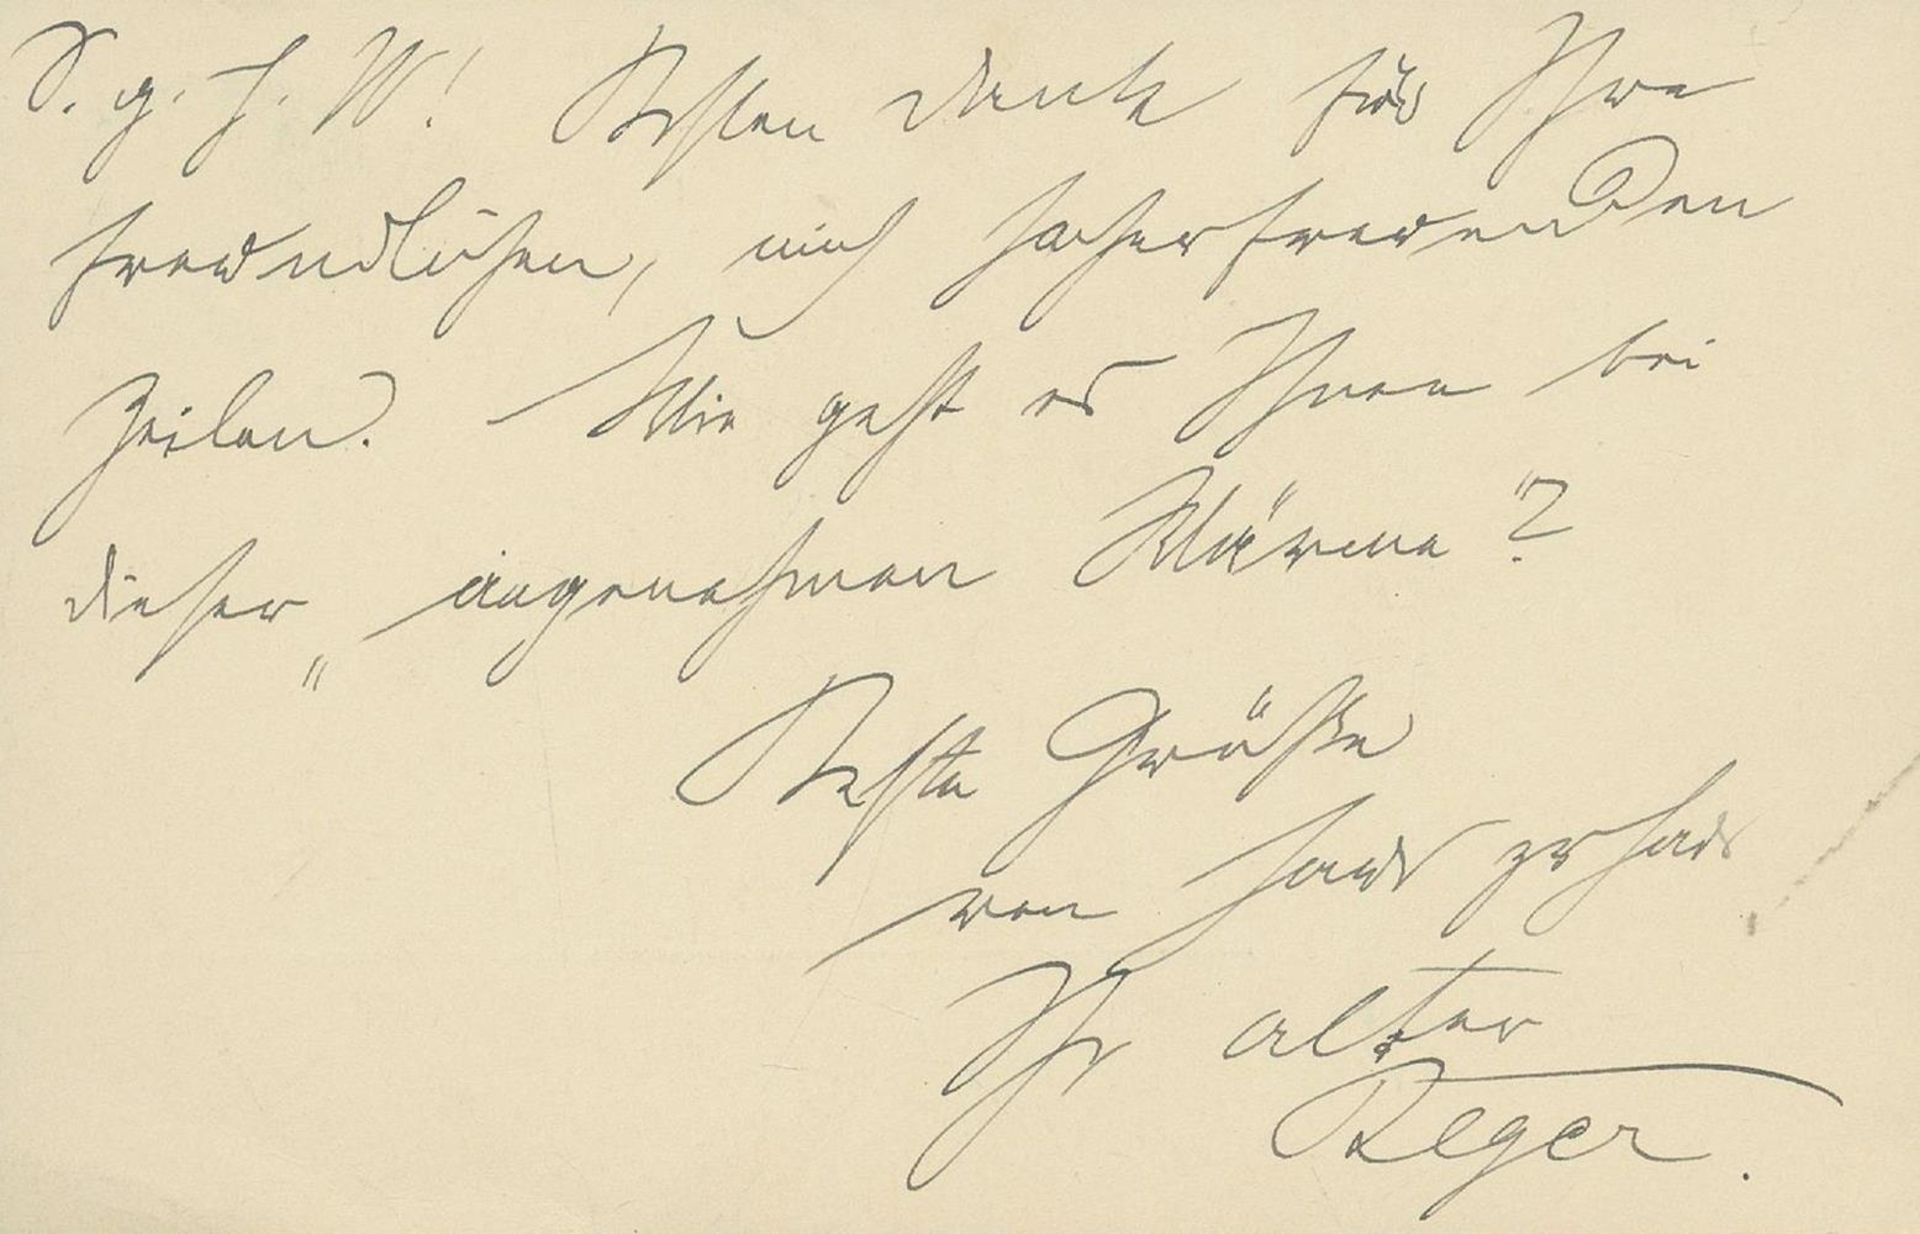 S. g. H. W! Besten Dank für Ihre
freundlichen, mich sehr erfreuenden
Zeilen. Wie geht es Ihnen bei
dieser „angenehmen Wärme"?
Beste Grüße
von Haus zu Haus
Ihr alter
Reger.